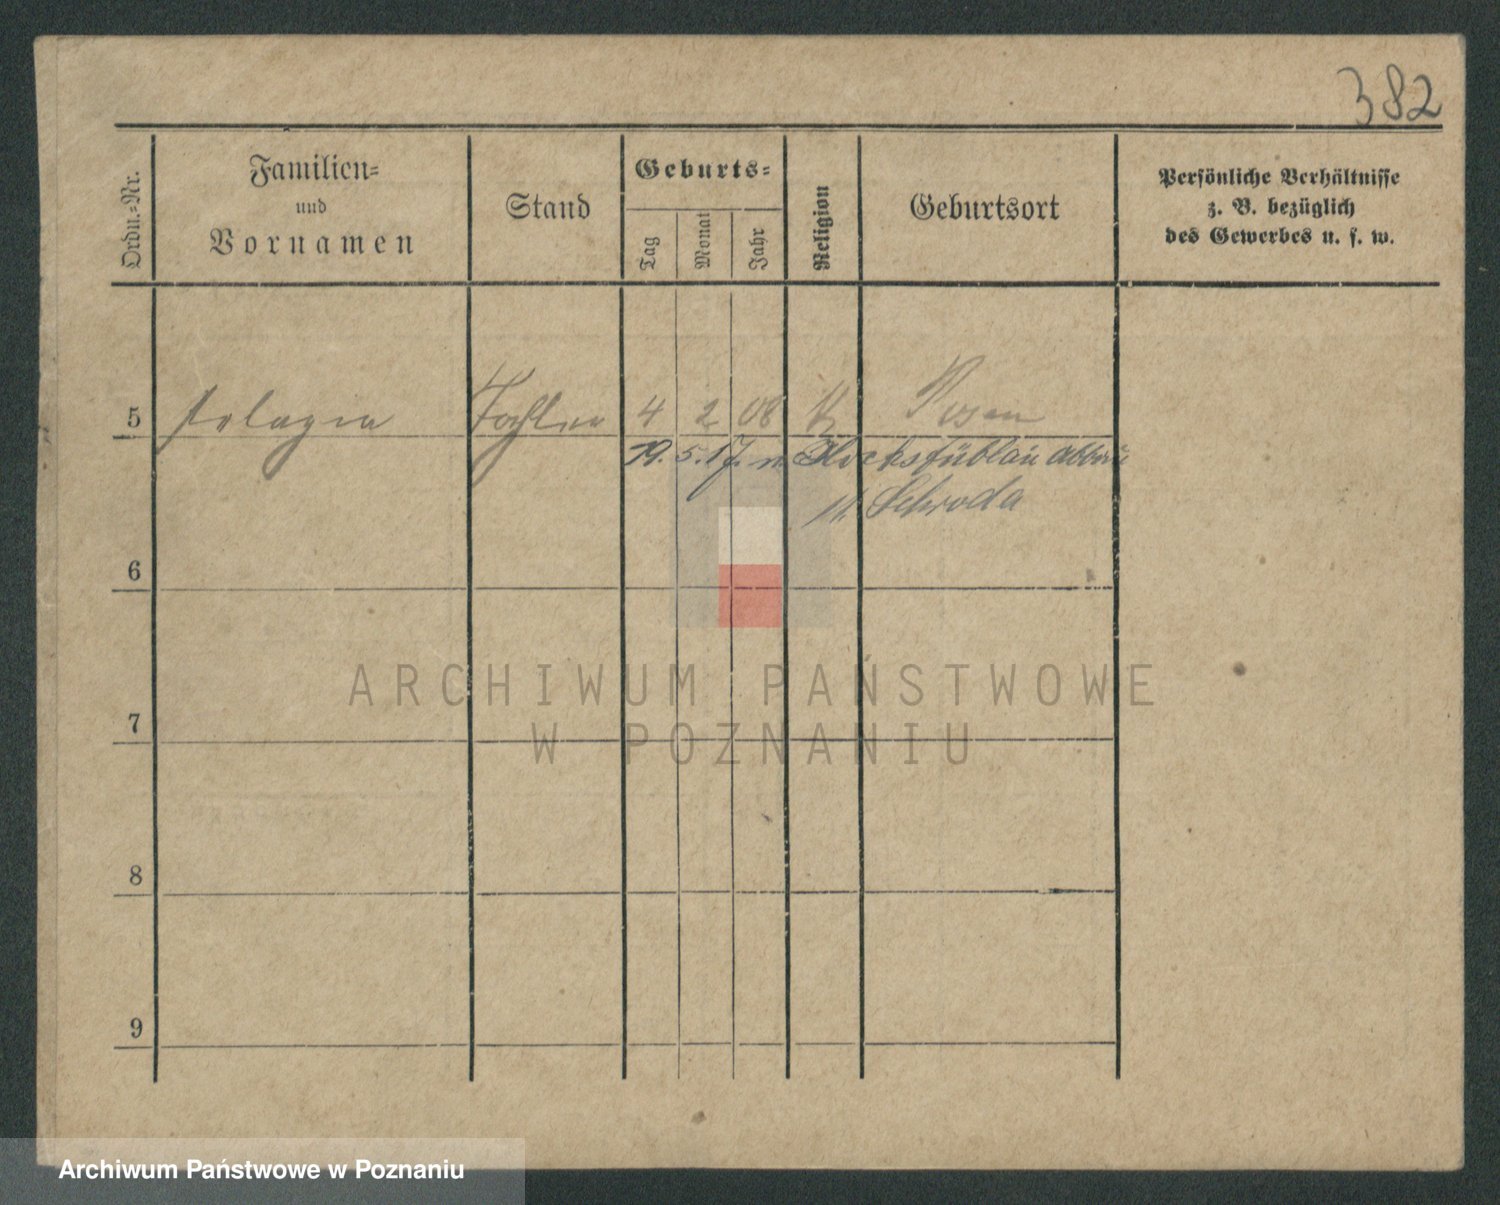 382
Ordn.-Nr.
Familien-
und
Vornamen
Stand
Geburts-
Tag
Monat
Jahr
Religion
Geburtsort
Persönliche Verhältnisse
z. B. bezüglich
des Gewerbes u. s. w.
5 Pelagia Tochter 4 2 08 K Posen
19. 5. 17. n.
n. Schroda
6
7
8
9
ARCHIWUM PAŃSTWOWE
W POZNANIU
Archiwum Państwowe w Poznaniu